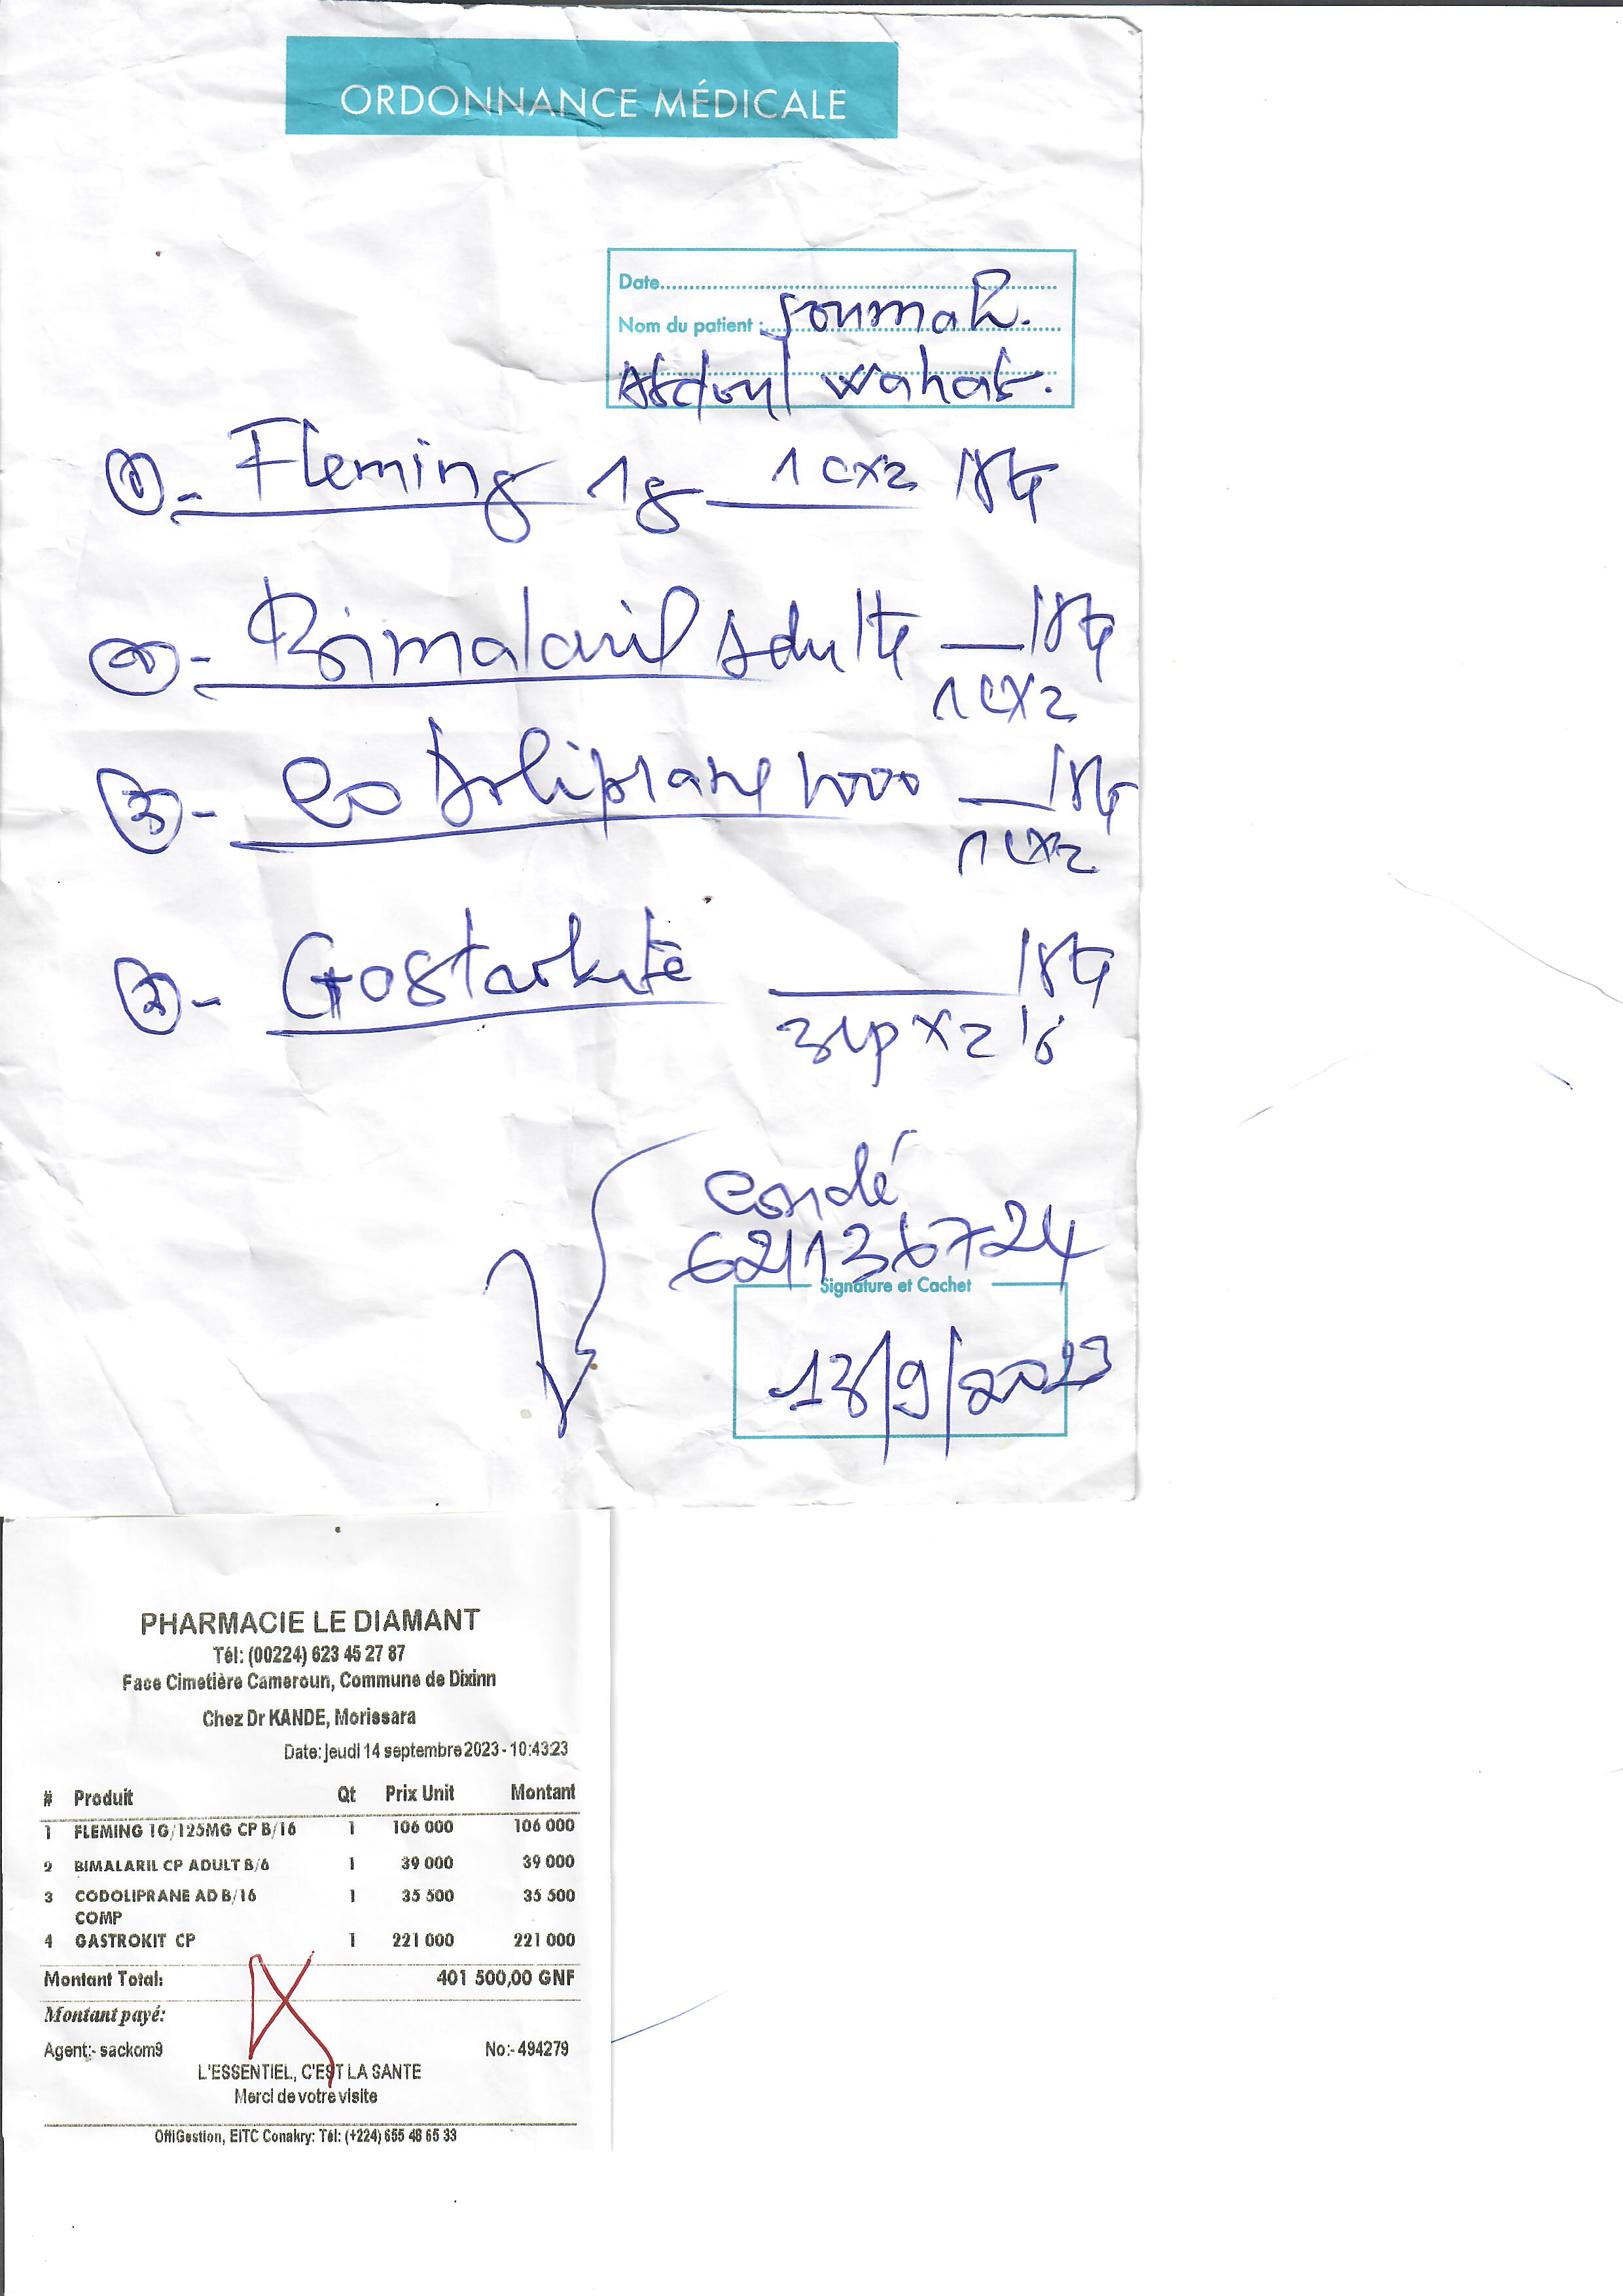 ORDONNANCE MÉDICALE
Date
Nom du patient : Soumah.
Abdoul Wahab.
1- Fleming 1g 1cx2 1Bte
2- Bimalaril Adulte 1Bte
1cx2
3- Co Doliprane 1000 1Bte
1cx2
1Bte
3cp x 2 /j
Condé
621136724
Signature et Cachet
13/9/2023
PHARMACIE LE DIAMANT
Tél: (00224) 623 45 27 87
Face Cimetière Cameroun, Commune de Dixinn
Chez Dr KANDE, Morissara
Date: jeudi 14 septembre 2023 - 10:43:23
# Produit Qt Prix Unit Montant
1 FLEMING 1G/125MG CP B/16 1 106 000 106 000
2 BIMALARIL CP ADULT B/6 1 39 000 39 000
3 CODOLIPRANE AD B/16 1 35 500 35 500
COMP
4 GASTROKIT CP 1 221 000 221 000
Montant Total: 401 500,00 GNF
Montant payé:
Agent:- sackom9 No:- 494279
L'ESSENTIEL, C'EST LA SANTE
Merci de votre visite
OffiGestion, EITC Conakry: Tél: (+224) 655 48 65 33